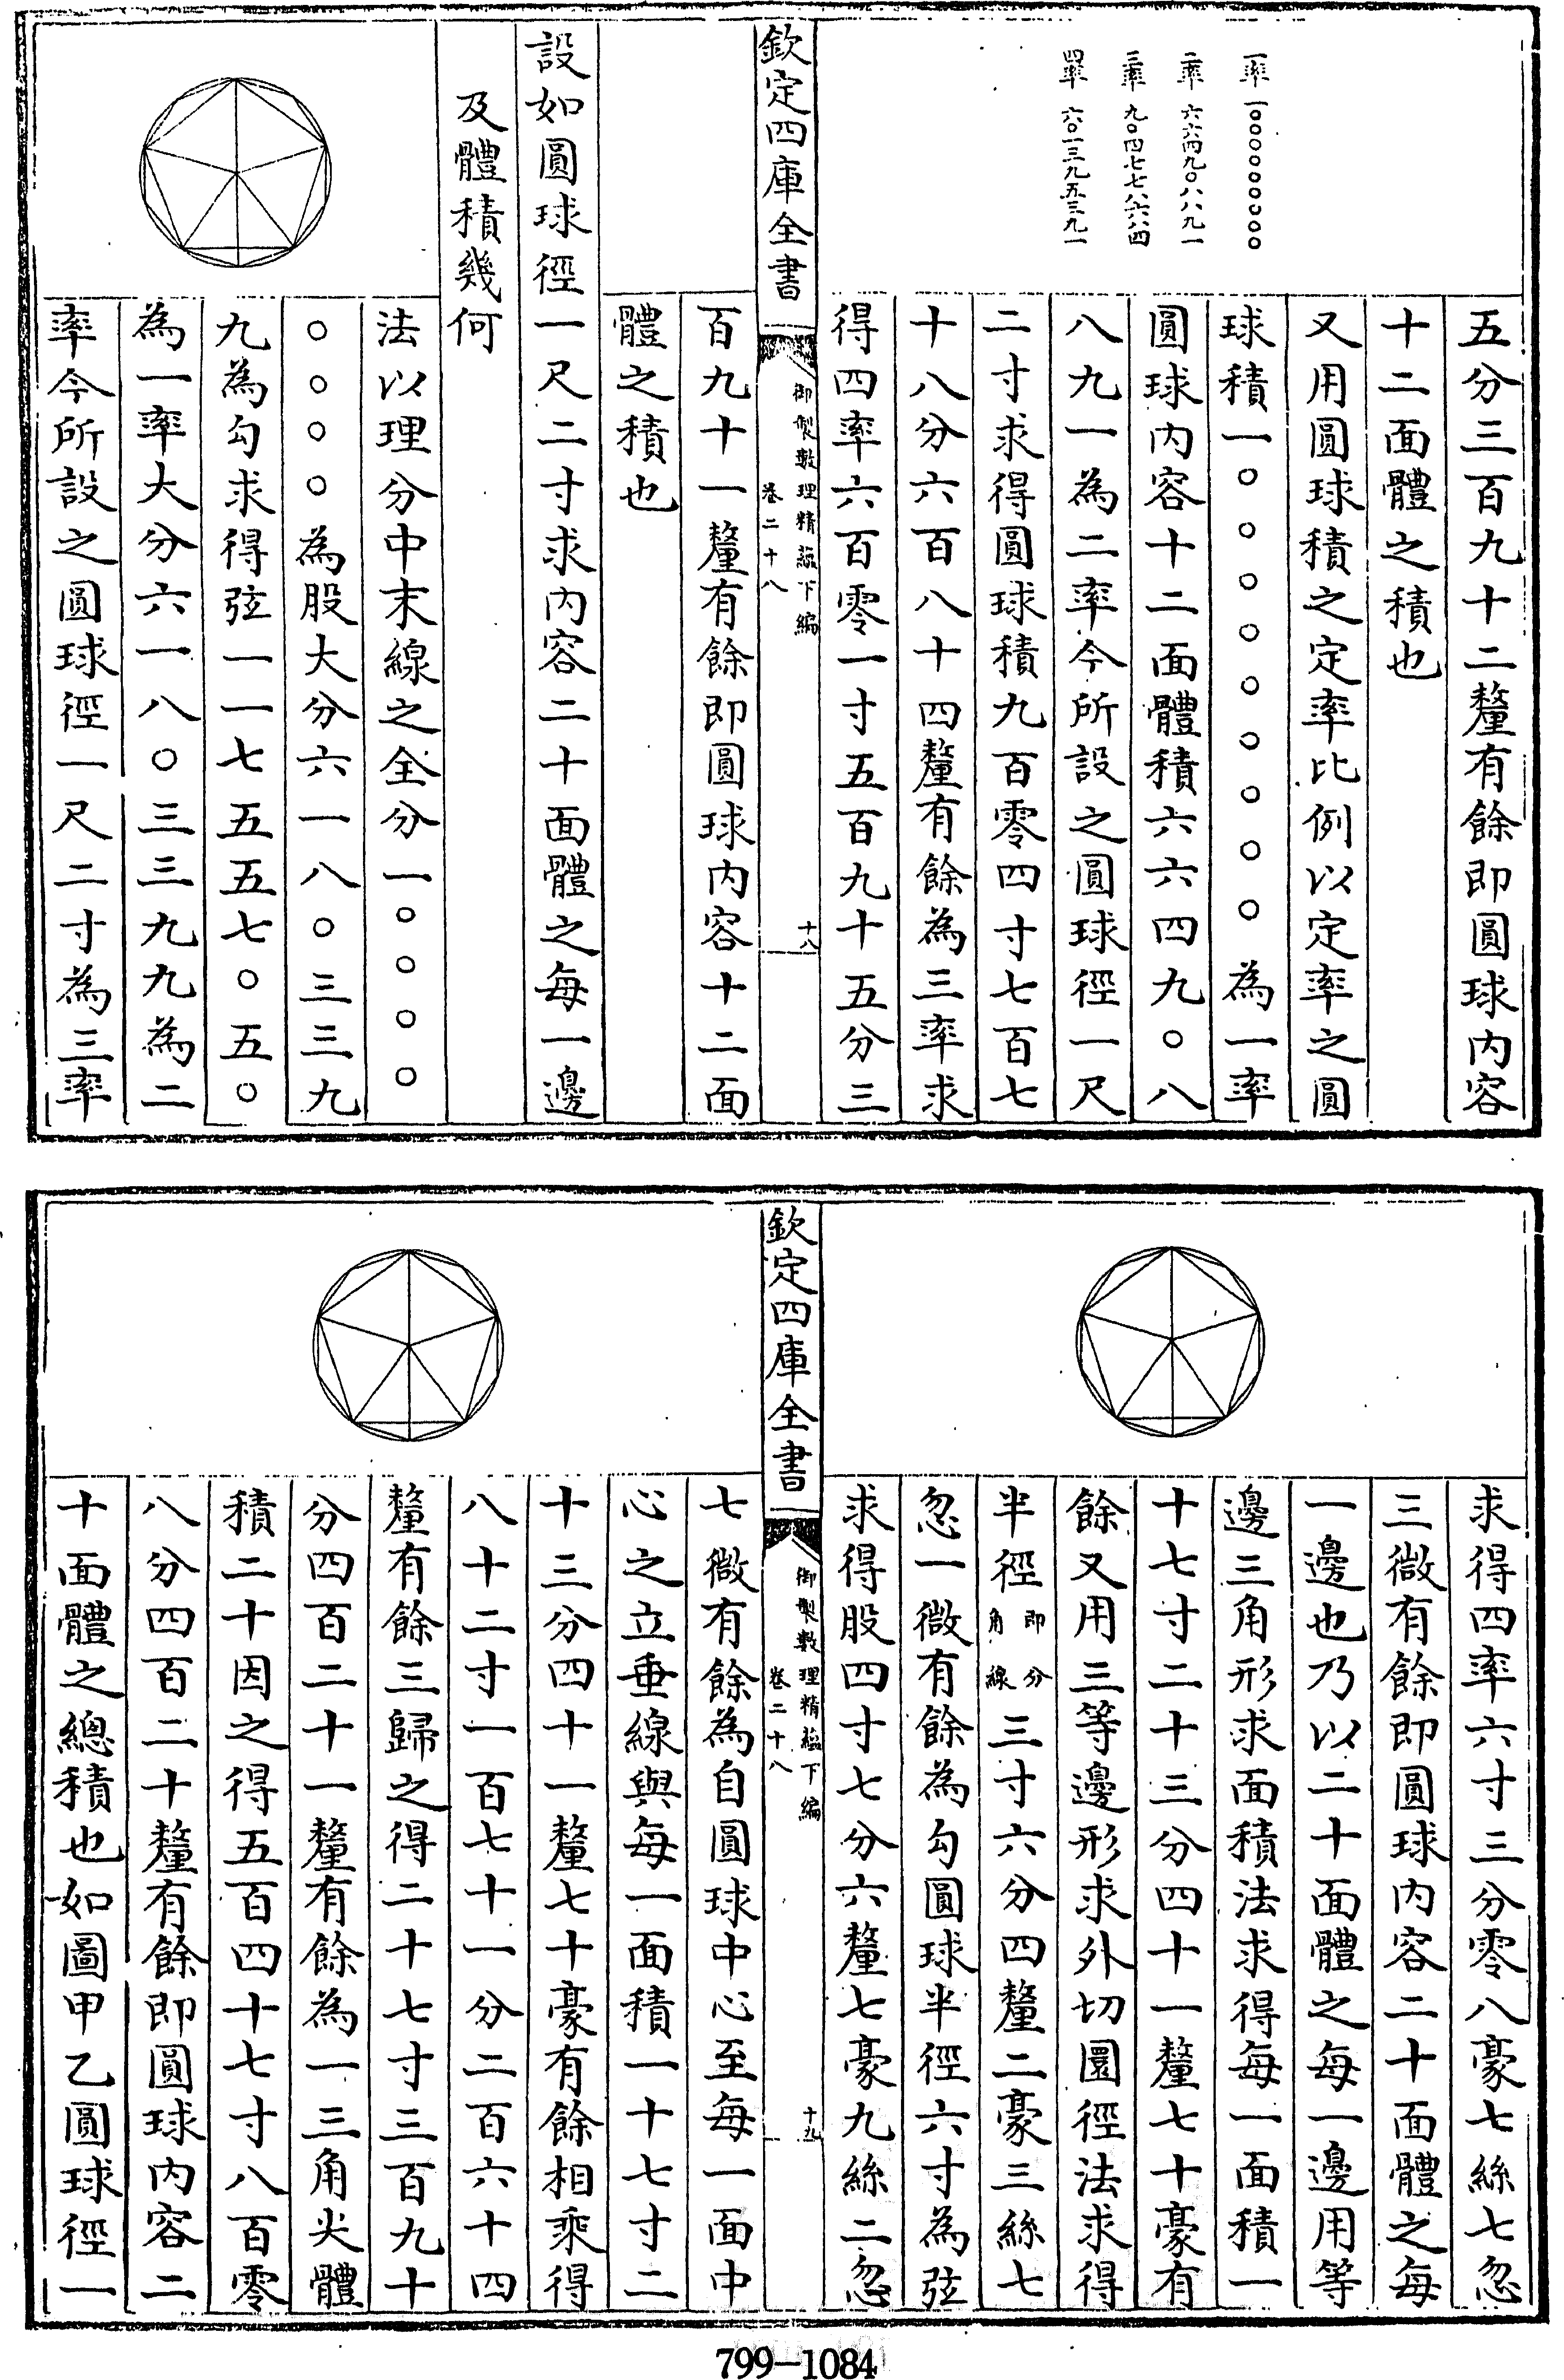 一率一〇〇〇〇〇〇〇〇〇
二率六六四九〇八八九一
三率九〇四七七八六八四
四率六〇一三九五三九一
五分三百九十二釐有餘即圓球内容
十二面體之積也
又用圓球積之定率比例以定率之圓
球積一〇〇〇〇〇〇〇〇〇為一率
圓球内容十二面體積六六四九〇八
八九一為二率今所設之圓球徑一尺
二寸求得圓球積九百零四寸七百七
十八分六百八十四釐有餘為三率求
得四率六百零一寸五百九十五分三
欽定四庫全書
御製數理精蘊下編
卷二十八
十八
百九十一釐有餘即圓球内容十二面
體之積也
設如圓球徑一尺二寸求内容二十面體之每一邊
及體積幾何
法以理分中末線之全分一〇〇〇〇
〇〇〇〇為股大分六一八〇三三九
九為勾求得弦一一七五五七〇五〇
為一率大分六一八〇三三九九為二
率今所設之圓球徑一尺二寸為三率
求得四率六寸三分零八豪七絲七忽
三微有餘即圓球内容二十面體之每
一邊也乃以二十面體之每一邊用等
邊三角形求面積法求得每一面積一
十七寸二十三分四十一釐七十豪有
餘又用三等邊形求外切圜徑法求得
半徑即分角線三寸六分四釐二豪三絲七
忽一微有餘為勾圓球半徑六寸為弦
求得股四寸七分六釐七豪九絲二忽
欽定四庫全書
御製數理精蘊下編
卷二十八
十九
七微有餘為自圓球中心至每一面中
心之立垂線與每一面積一十七寸二
十三分四十一釐七十豪有餘相乘得
八十二寸一百七十一分二百六十四
釐有餘三歸之得二十七寸三百九十
分四百二十一釐有餘為一三角尖體
積二十因之得五百四十七寸八百零
八分四百二十釐有餘即圓球内容二
十面體之總積也如圖甲乙圓球徑一
799-1084